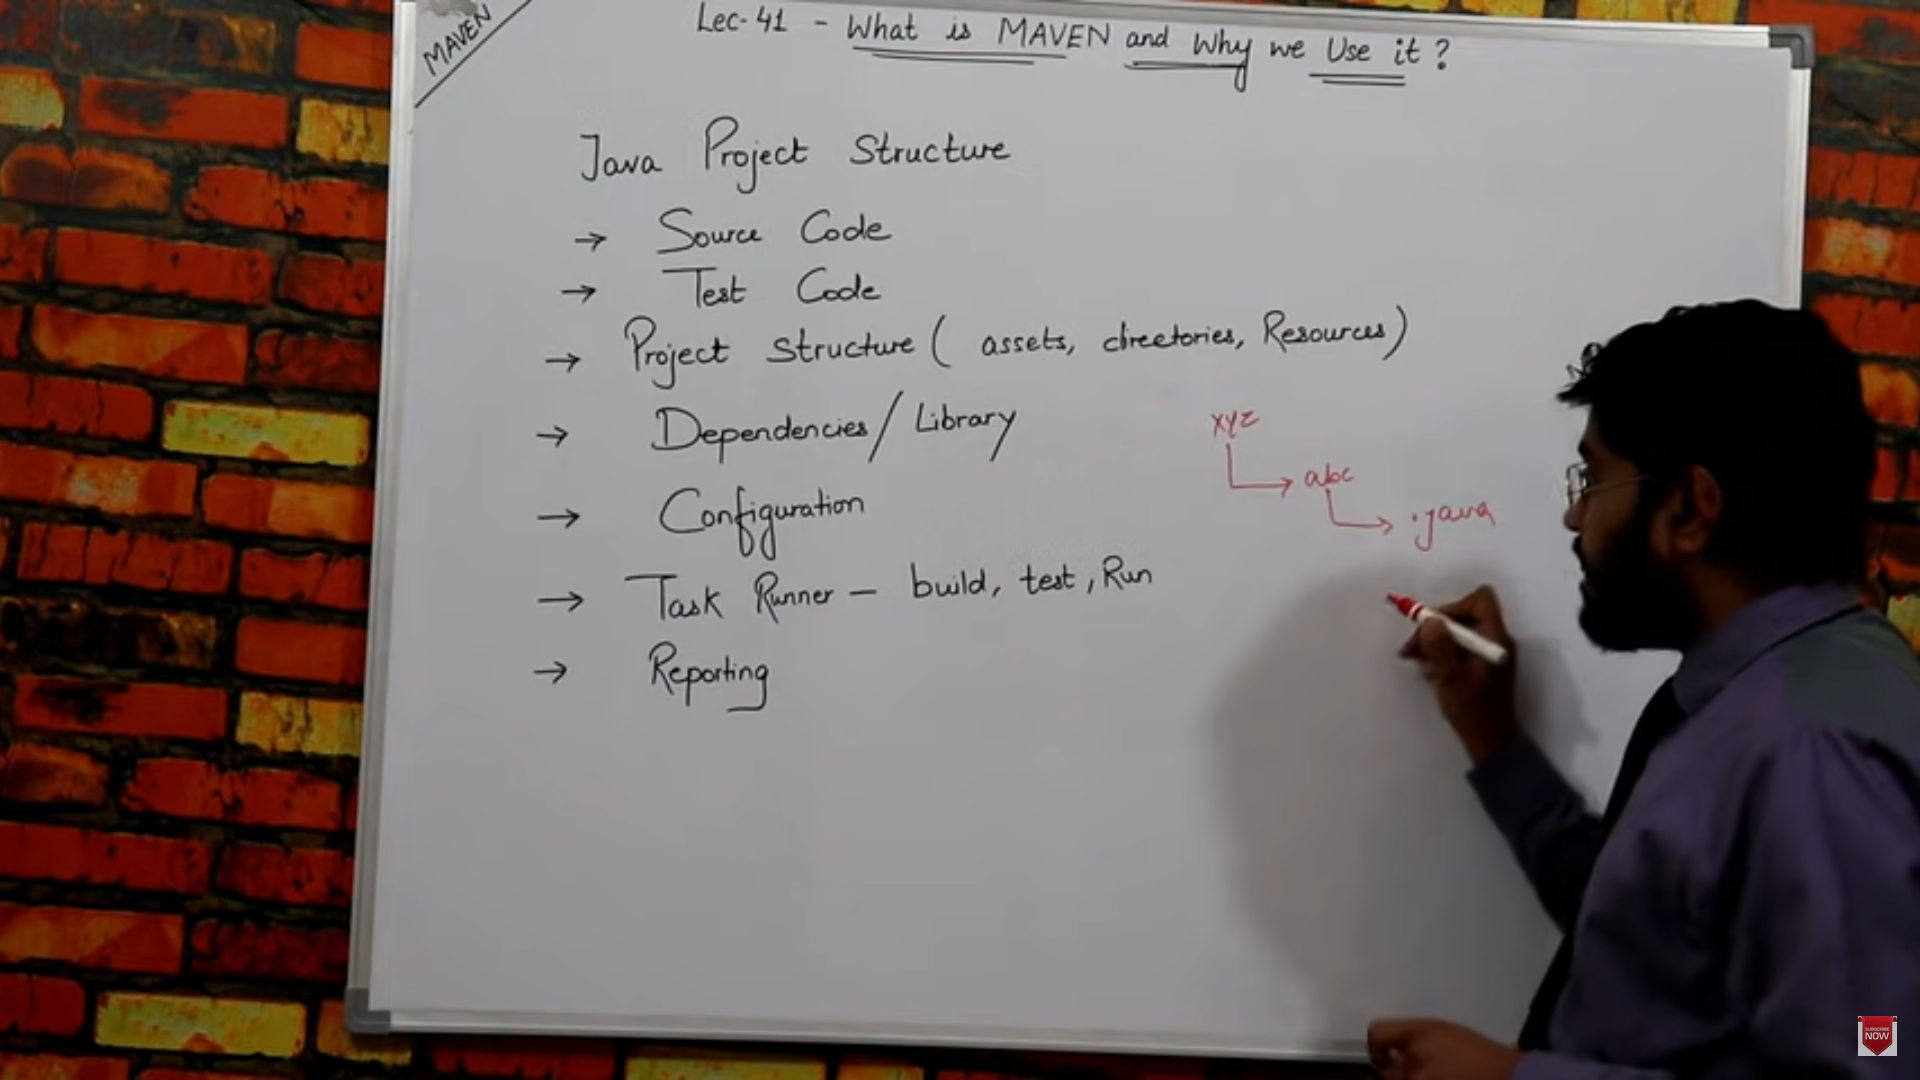 MAVEN
Lec-41 - What is MAVEN and Why we Use it ?
Java Project Structure
→ Source Code
→ Test Code
→ Project Structure ( assets, directories, Resources)
→ Dependencies / Library
→ Configuration
→ Task Runner - build, test, Run
→ Reporting
xyz
abc
.java
SUBSCRIBE
NOW